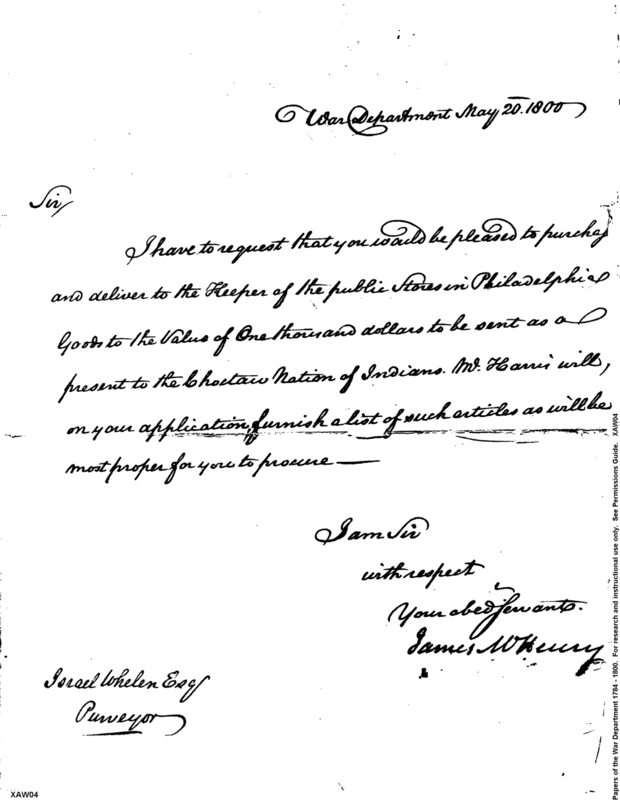 War Department May 20. 1800
Sir
I have to request that you would be pleased to purchas
and deliver to the Keeper of the public Stores in Philadelphia
Goods to the Value of One thousand dollars to be sent as a
present to the Choctaw Nation of Indians. Mr. Harris will,
on your application, furnish a list of such articles as will be
most proper for you to procure —
I am Sir
with respect
Your obed Servants.
James McHenry
Israel Whelen Esqr
Purveyor
XAW04
Papers of the War Department 1784 - 1800. For research and instructional use only. See Permissions Guide. XAW04